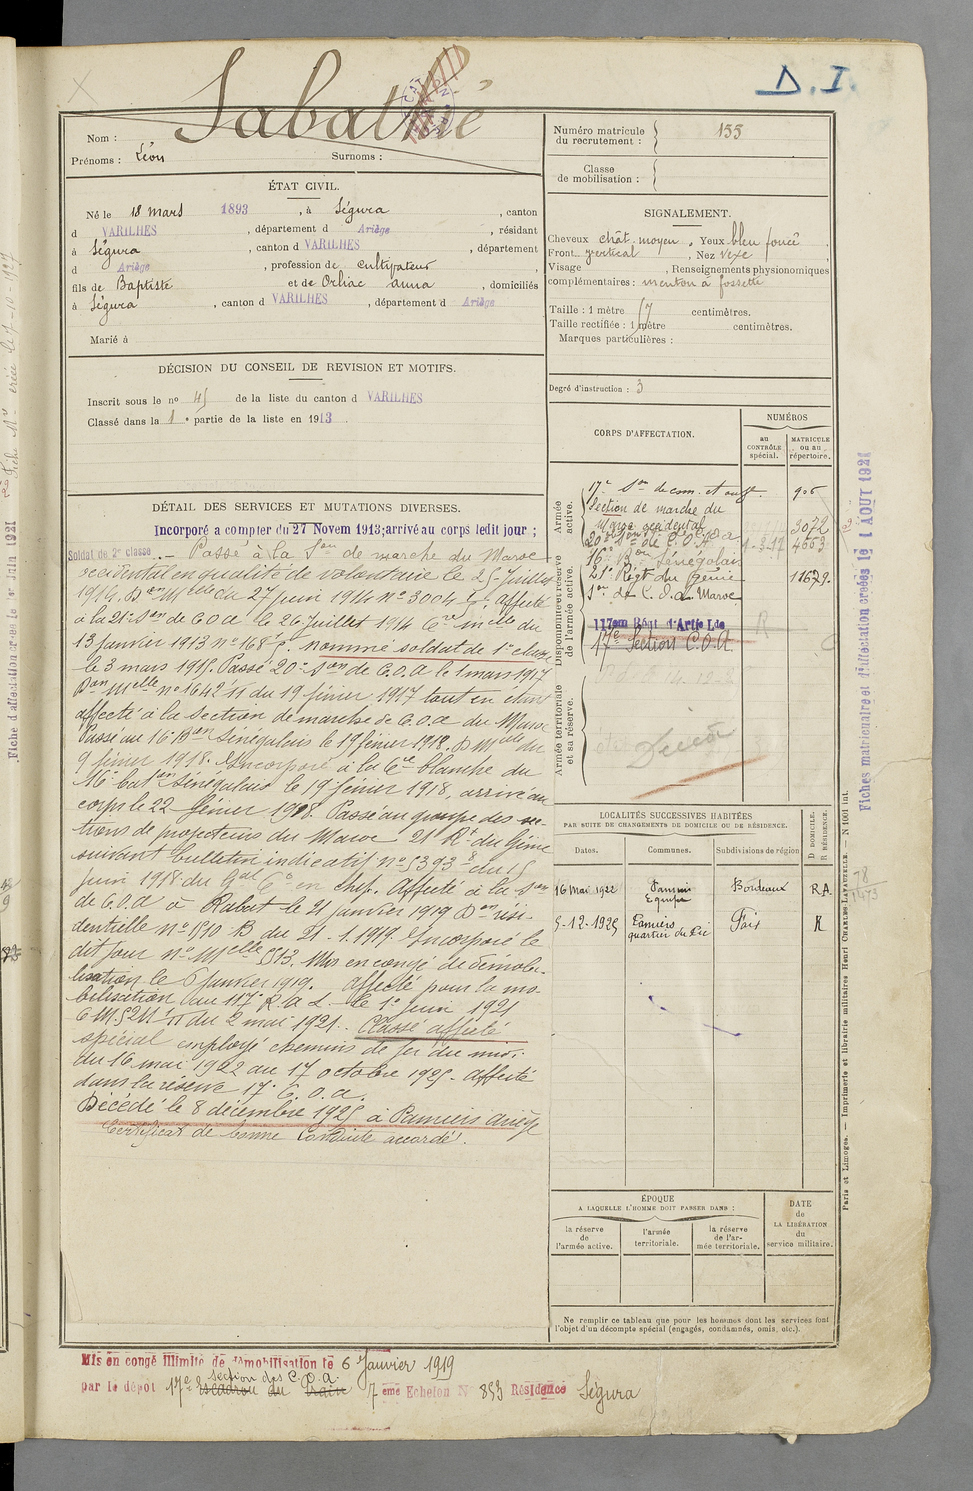 D. I.
Sabatié
Nom :
Prénoms : Léon Surnoms :
Numéro matricule du recrutement : 155
Classe de mobilisation :
ÉTAT CIVIL.
Né le 18 mars 1893, à Ségura, canton
d VARILHES, département d Ariège, résidant
à Ségura, canton d VARILHES, département
d Ariège, profession de cultivateur,
fils de Baptiste et de Orliac Anna, domiciliés
à Ségura, canton d VARILHES, département d Ariège
Marié à
SIGNALEMENT.
Cheveux chât. moyen, Yeux bleu foncé
Front vertical, Nez vexe
Visage , Renseignements physionomiques
complémentaires : menton à fossette
Taille : 1 mètre 67 centimètres.
Taille rectifiée : 1 mètre centimètres.
Marques particulières :
Degré d'instruction : 3
DÉCISION DU CONSEIL DE REVISION ET MOTIFS.
Inscrit sous le no 45 de la liste du canton d VARILHES
Classé dans la 1e partie de la liste en 1913.
DÉTAIL DES SERVICES ET MUTATIONS DIVERSES.
Incorporé a compter du 27 Novem 1913; arrivé au corps ledit jour ;
Soldat de 2e classe. - Passé à la Son de marche du Maroc
occidental en qualité de volontaire le 25 Juillet
1914. Don Melle du 27 juin 1914 no 3004 affecté
à la 21e Son de C.O.A le 26 juillet 1914 Cre melle du
13 Janvier 1913 no 168 nommé soldat de 1e classe
le 3 mars 1915. Passé 20e Son de C.O.A le 1 mars 1917
Don Melle no 1642 11 du 19 février 1917 tout en étant
affecté à la section de marche de C.O.A du Maroc
Passé au 16e Bon Sénégalais le 19 février 1918. D Melle du
9 février 1918. Incorporé à la Cie blanche du
16e baton Sénégalais le 19 février 1918, arrivé au
corps le 22 février 1918. Passé au groupe des sec-
tions de projecteurs du Maroc 21 Rt du Génie
suivant bulletin indicatif no 5393 8 du 15
Juin 1918 du Gal Ct en chef. Affecté à la Son
de C.O.A à Rabat le 21 janvier 1919 Don rési-
dentielle no 1510 B du 21-1-1919. Incorporé le
dit jour no Melle 513. Mis en congé de démobi-
lisation le 6 janvier 1919. affecté pour la mo-
bilisation au 117e R.A.L. le 1e juin 1921
C.M. 521 1/11 du 2 mai 1921. Classé affecté
spécial employé chemins de fer du midi
du 16 mai 1922 au 17 octobre 1925 - affecté
dans la réserve 17e C.O.A.
Décédé le 8 décembre 1925 à Pamiers Ariège
Certificat de bonne conduite accordé.
CORPS D'AFFECTATION.
NUMÉROS
au CONTRÔLE spécial.
MATRICULE ou au répertoire.
Armée active.
17e Son de com. et ouv. 906
Section de marche du
Maroc occidental 3072
20e Son de C.O.A 1-3-17 4553
16e Bon Sénégalais
21e Régt du Génie 11679
Son de C.O.A Maroc
Disponibilité et réserve de l'armée active.
117em Régt d'Artie Lde R
17e Section C.O.A
Armée territoriale et sa réserve.
LOCALITÉS SUCCESSIVES HABITÉES
PAR SUITE DE CHANGEMENTS DE DOMICILE OU DE RÉSIDENCE.
D DOMICILE.
R RÉSIDENCE.
Dates. Communes. Subdivisions de région
16 Mai 1922 Pamiers Bordeaux RA
5-12-1925 Pamiers Foix R
quartier du
ÉPOQUE
A LAQUELLE L'HOMME DOIT PASSER DANS :
la réserve de l'armée active.
l'armée territoriale.
la réserve de l'armée territoriale.
DATE de LA LIBÉRATION du service militaire.
Ne remplir ce tableau que pour les hommes dont les services font
l'objet d'un décompte spécial (engagés, condamnés, omis, etc.).
Mis en congé illimité de démobilisation le 6 Janvier 1919
section des C.O.A.
par le dépôt 17e escadron du Train 7eme Echelon N 853 Résidence Ségura
Fiches matriculaire et d'affectation créées le 1 AOUT 1921
Paris et Limoges. — Imprimerie et librairie militaires Henri CHARLES-LAVAUZELLE. — N 1001 int.
78
1473